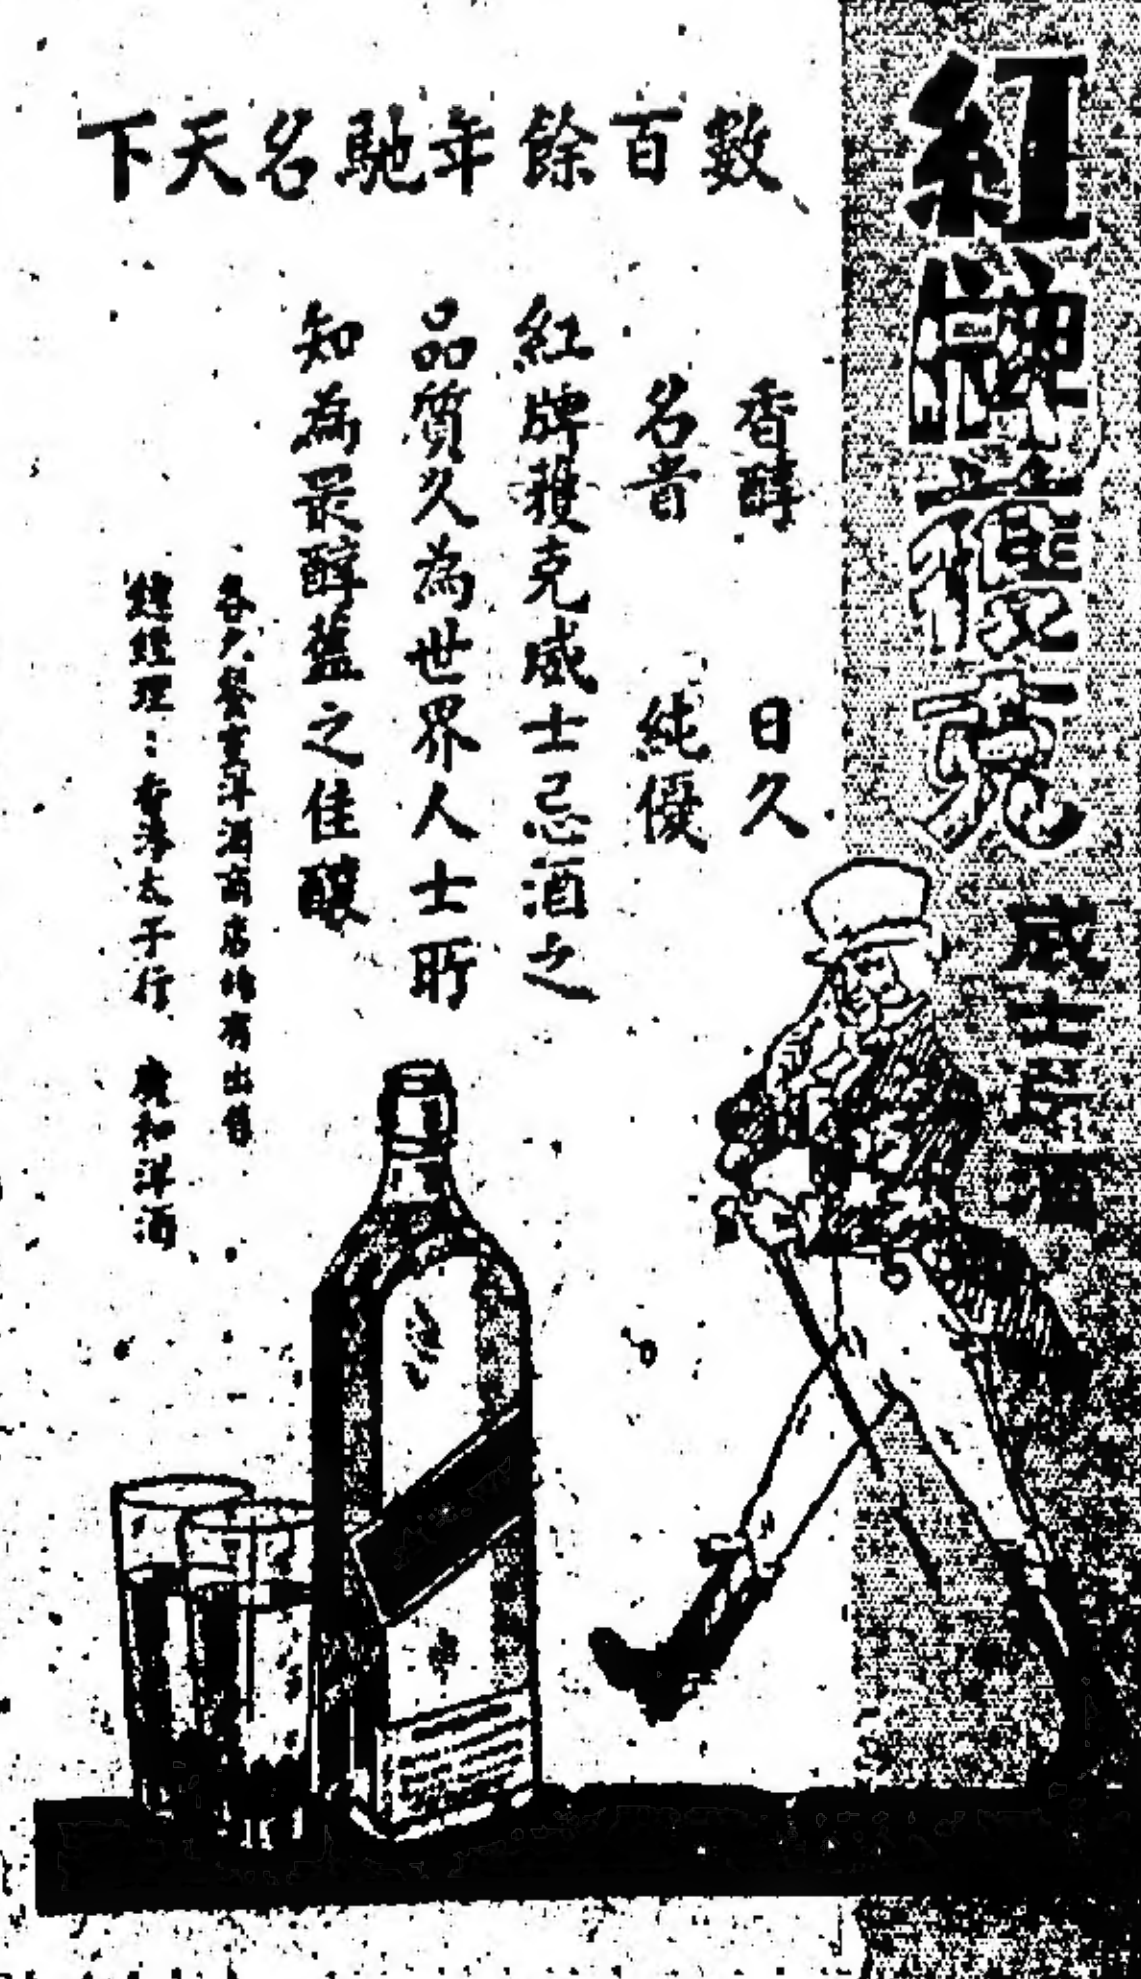 紅牌獲克威士忌酒
數百餘年馳名天下
香醇 日久
名者 純優
紅牌獲克威士忌酒之
品質久為世界人士所
知為最醇之佳釀
各大餐室洋酒商店均有出售
總經理：香港太子行 廣和洋酒